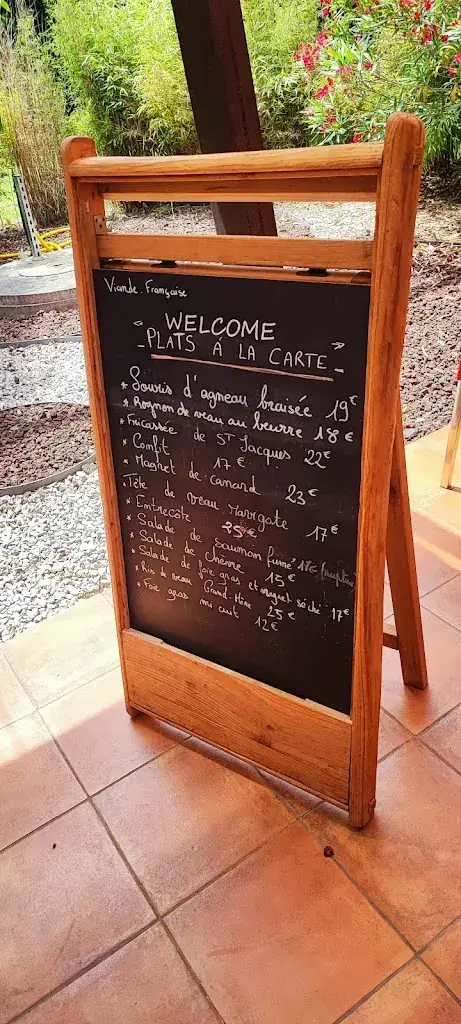 Viande Française
WELCOME
- PLATS Á LA CARTE -
* Souris d'agneau braisée 19€
* Rognon de veau au beurre 18€
* Fricassée de ST Jacques 22€
* Confit 17€
* Magret de canard 23€
* Tête de veau Ravigate 17€
* Entrecôte 25€
* Salade de saumon fumé 18€
* Salade de chèvre 15€
* Salade de foie gras et magret séché 17€
* Ris de veau Grand-Mère 25€
* Foie gras mi cuit 12€